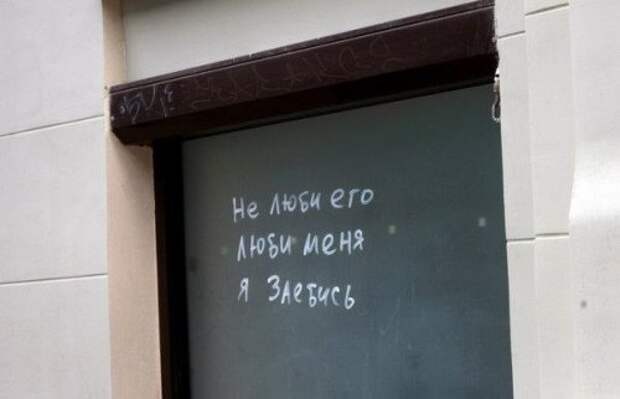 Не люби его
люби меня
я заебись